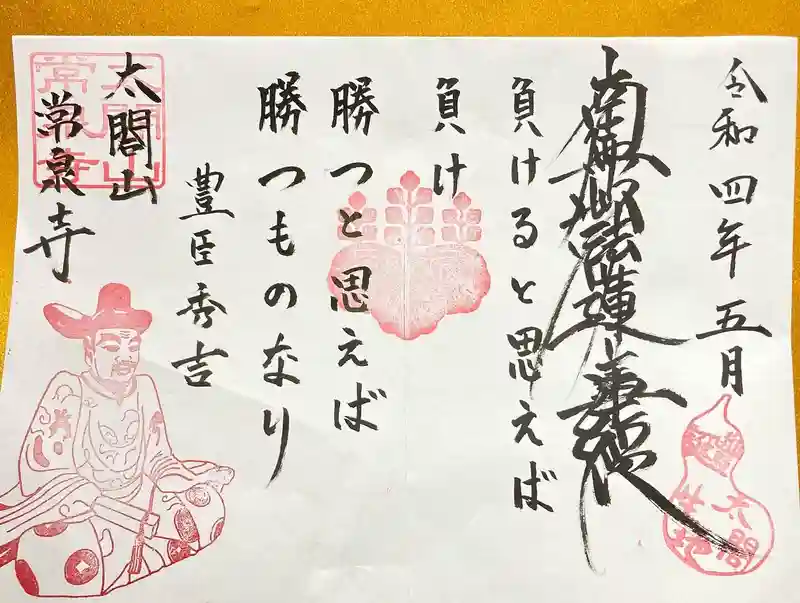 令和四年五月
南無妙法蓮華経
負けると思えば
負け
勝つと思えば
勝つものなり
豊臣秀吉
太閤山
常泉寺
太閤山
常泉寺
豊太閤
誕生地